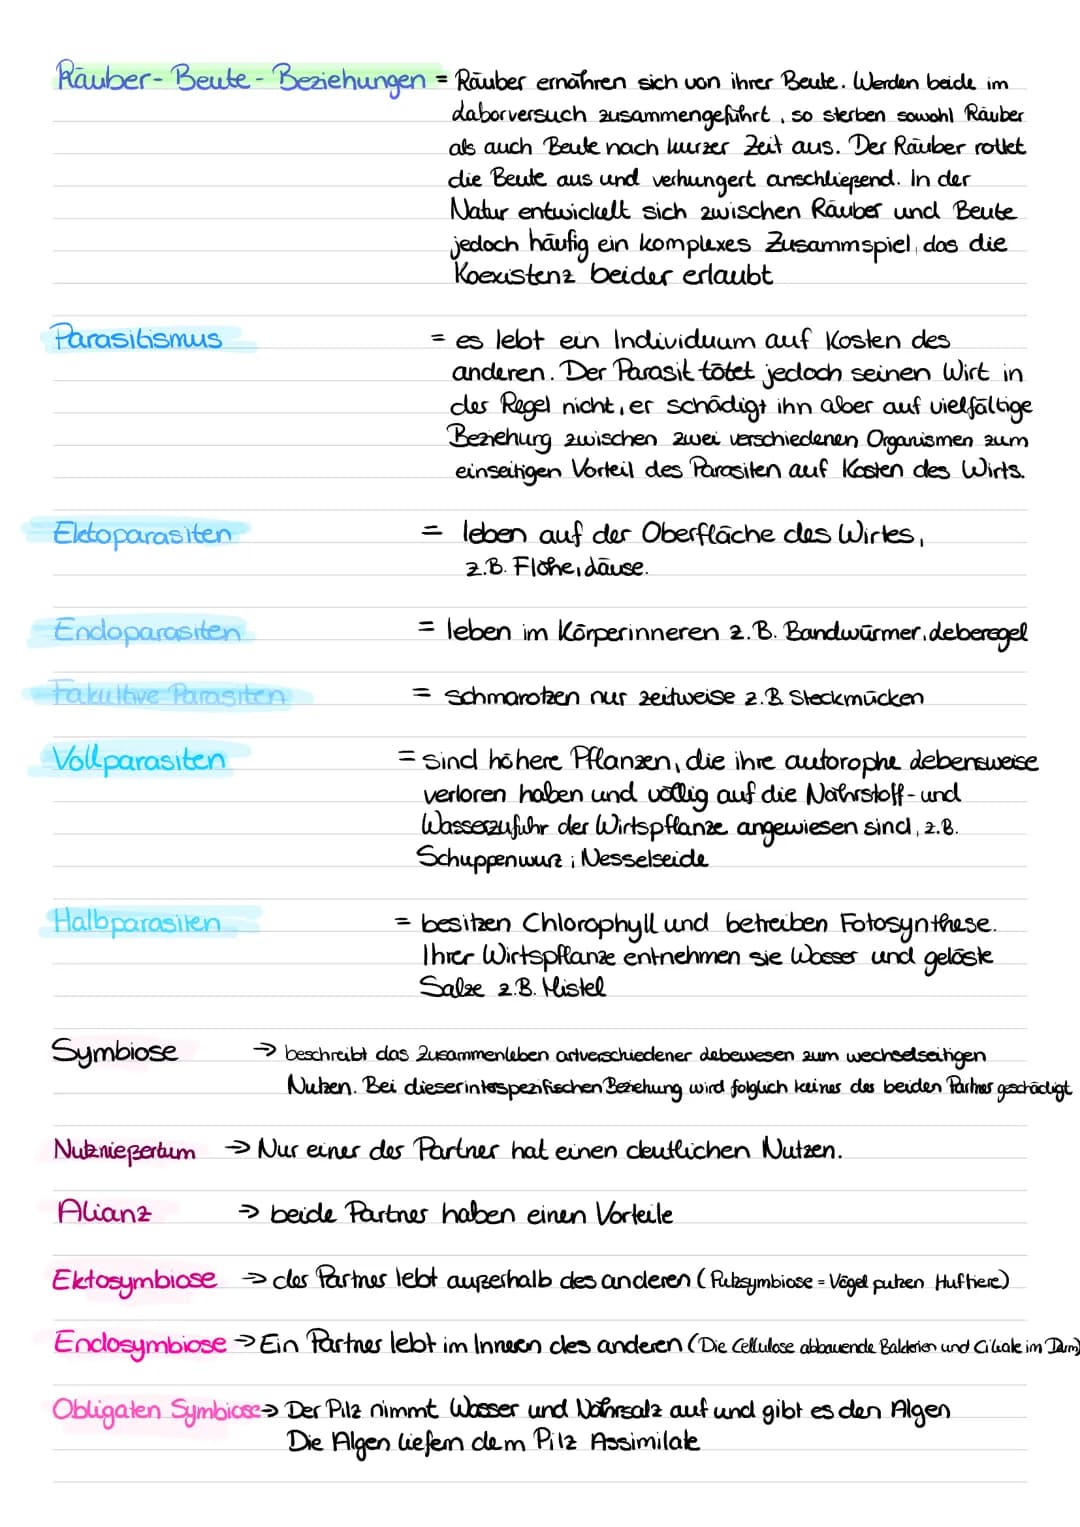 Räuber-Beute-Beziehungen = Räuber ernähren sich von ihrer Beute. Werden beide im
Laborversuch zusammengeführt, so sterben sowohl Räuber
als auch Beute nach kurzer Zeit aus. Der Räuber rottet
die Beute aus und verhungert anschließend. In der
Natur entwickelt sich zwischen Räuber und Beute
jedoch häufig ein komplexes Zusammspiel, das die
Koexistenz beider erlaubt
Parasitismus = es lebt ein Individuum auf Kosten des
anderen. Der Parasit tötet jedoch seinen Wirt in
der Regel nicht, er schädigt ihn aber auf vielfältige
Beziehung zwischen zwei verschiedenen Organismen zum
einseitigen Vorteil des Parasiten auf Kosten des Wirts.
Ektoparasiten = leben auf der Oberfläche des Wirtes,
z.B. Flöhe, Läuse.
Endoparasiten = leben im Körperinneren z.B. Bandwürmer, Leberegel
Fakultive Parasiten = schmarotzen nur zeitweise z.B. Steckmücken
Vollparasiten = sind höhere Pflanzen, die ihre autorophe Lebensweise
verloren haben und völlig auf die Nährstoff- und
Wasserzufuhr der Wirtspflanze angewiesen sind, z.B.
Schuppenwurz ; Nesselseide
Halbparasiten = besitzen Chlorophyll und betreiben Fotosynthese.
Ihrer Wirtspflanze entnehmen sie Wasser und gelöste
Salze z.B. Mistel
Symbiose → beschreibt das Zusammenleben artverschiedener Lebewesen zum wechselseitigen
Nutzen. Bei dieser interspezifischen Beziehung wird folglich keiner der beiden Partner geschädigt
Nutznießertum → Nur einer der Partner hat einen deutlichen Nutzen.
Alianz → beide Partner haben einen Vorteile
Ektosymbiose → der Partner lebt außerhalb des anderen (Putzsymbiose = Vögel putzen Huftiere)
Endosymbiose → Ein Partner lebt im Inneren des anderen (Die Cellulose abbauende Bakterien und Ciliate im Darm)
Obligaten Symbiose → Der Pilz nimmt Wasser und Nährsalz auf und gibt es den Algen
Die Algen liefern dem Pilz Assimilate